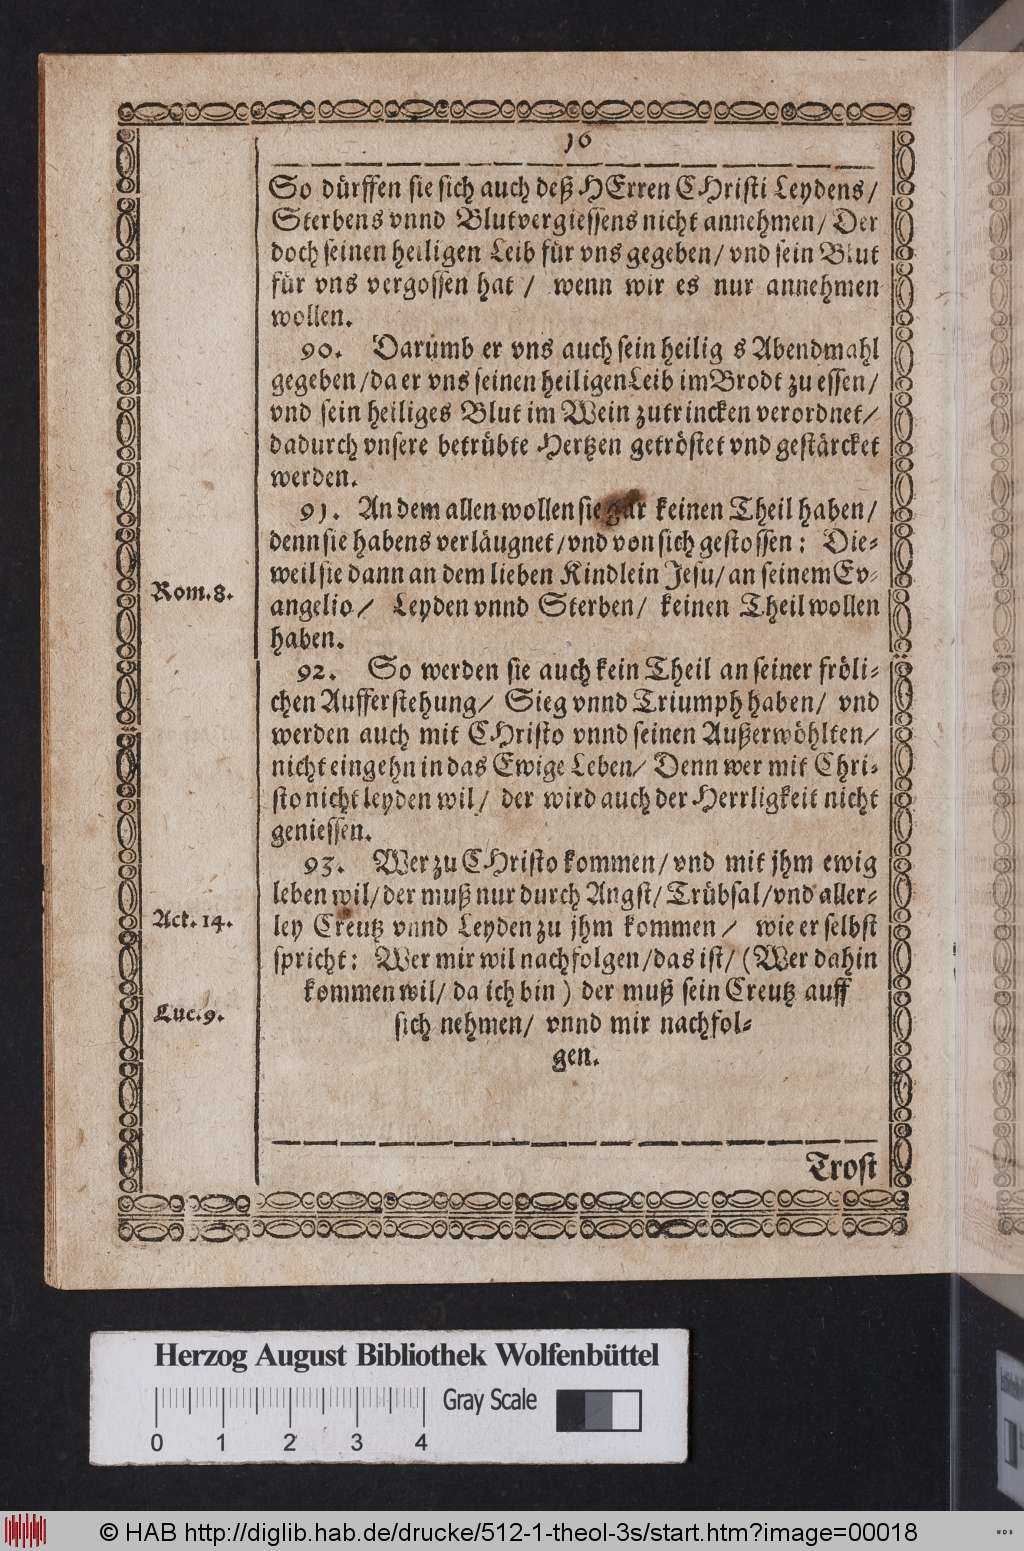 16
So dürffen sie sich auch deß HErren CHristi Leydens/
Sterbens vnnd Blutvergiessens nicht annehmen/ Der
doch seinen heiligen Leib für vns gegeben/ vnd sein Blut
für vns vergossen hat / wenn wir es nur annehmen
wollen.
90. Darumb er vns auch sein heilig s Abendmahl
gegeben/ da er vns seinen heiligen Leib im Brodt zu essen/
vnd sein heiliges Blut im Wein zutrincken verordnet/
dadurch vnsere betrübte Hertzen getröstet vnd gestärcket
werden.
91. An dem allen wollen sie gar keinen Theil haben/
denn sie habens verläugnet/ vnd von sich gestossen: Die-
weil sie dann an dem lieben Kindlein Jesu/ an seinem Ev-
Rom. 8.
angelio/ Leyden vnnd Sterben/ keinen Theil wollen
haben.
92. So werden sie auch kein Theil an seiner fröli-
chen Aufferstehung/ Sieg vnnd Triumph haben/ vnd
werden auch mit CHristo vnnd seinen Außerwöhlten/
nicht eingehn in das Ewige Leben/ Denn wer mit Chri-
sto nicht leyden wil/ der wird auch der Herrligkeit nicht
geniessen.
93. Wer zu CHristo kommen/ vnd mit jhm ewig
leben wil/ der muß nur durch Angst/ Trübsal/ vnd aller-
Act. 14.
ley Creutz vnnd Leyden zu jhm kommen/ wie er selbst
spricht: Wer mir wil nachfolgen/ das ist/ (Wer dahin
kommen wil/ da ich bin) der muß sein Creutz auff
Luc. 9.
sich nehmen/ vnnd mir nachfol-
gen.
Trost
Herzog August Bibliothek Wolfenbüttel
Gray Scale
0 1 2 3 4
© HAB http://diglib.hab.de/drucke/512-1-theol-3s/start.htm?image=00018